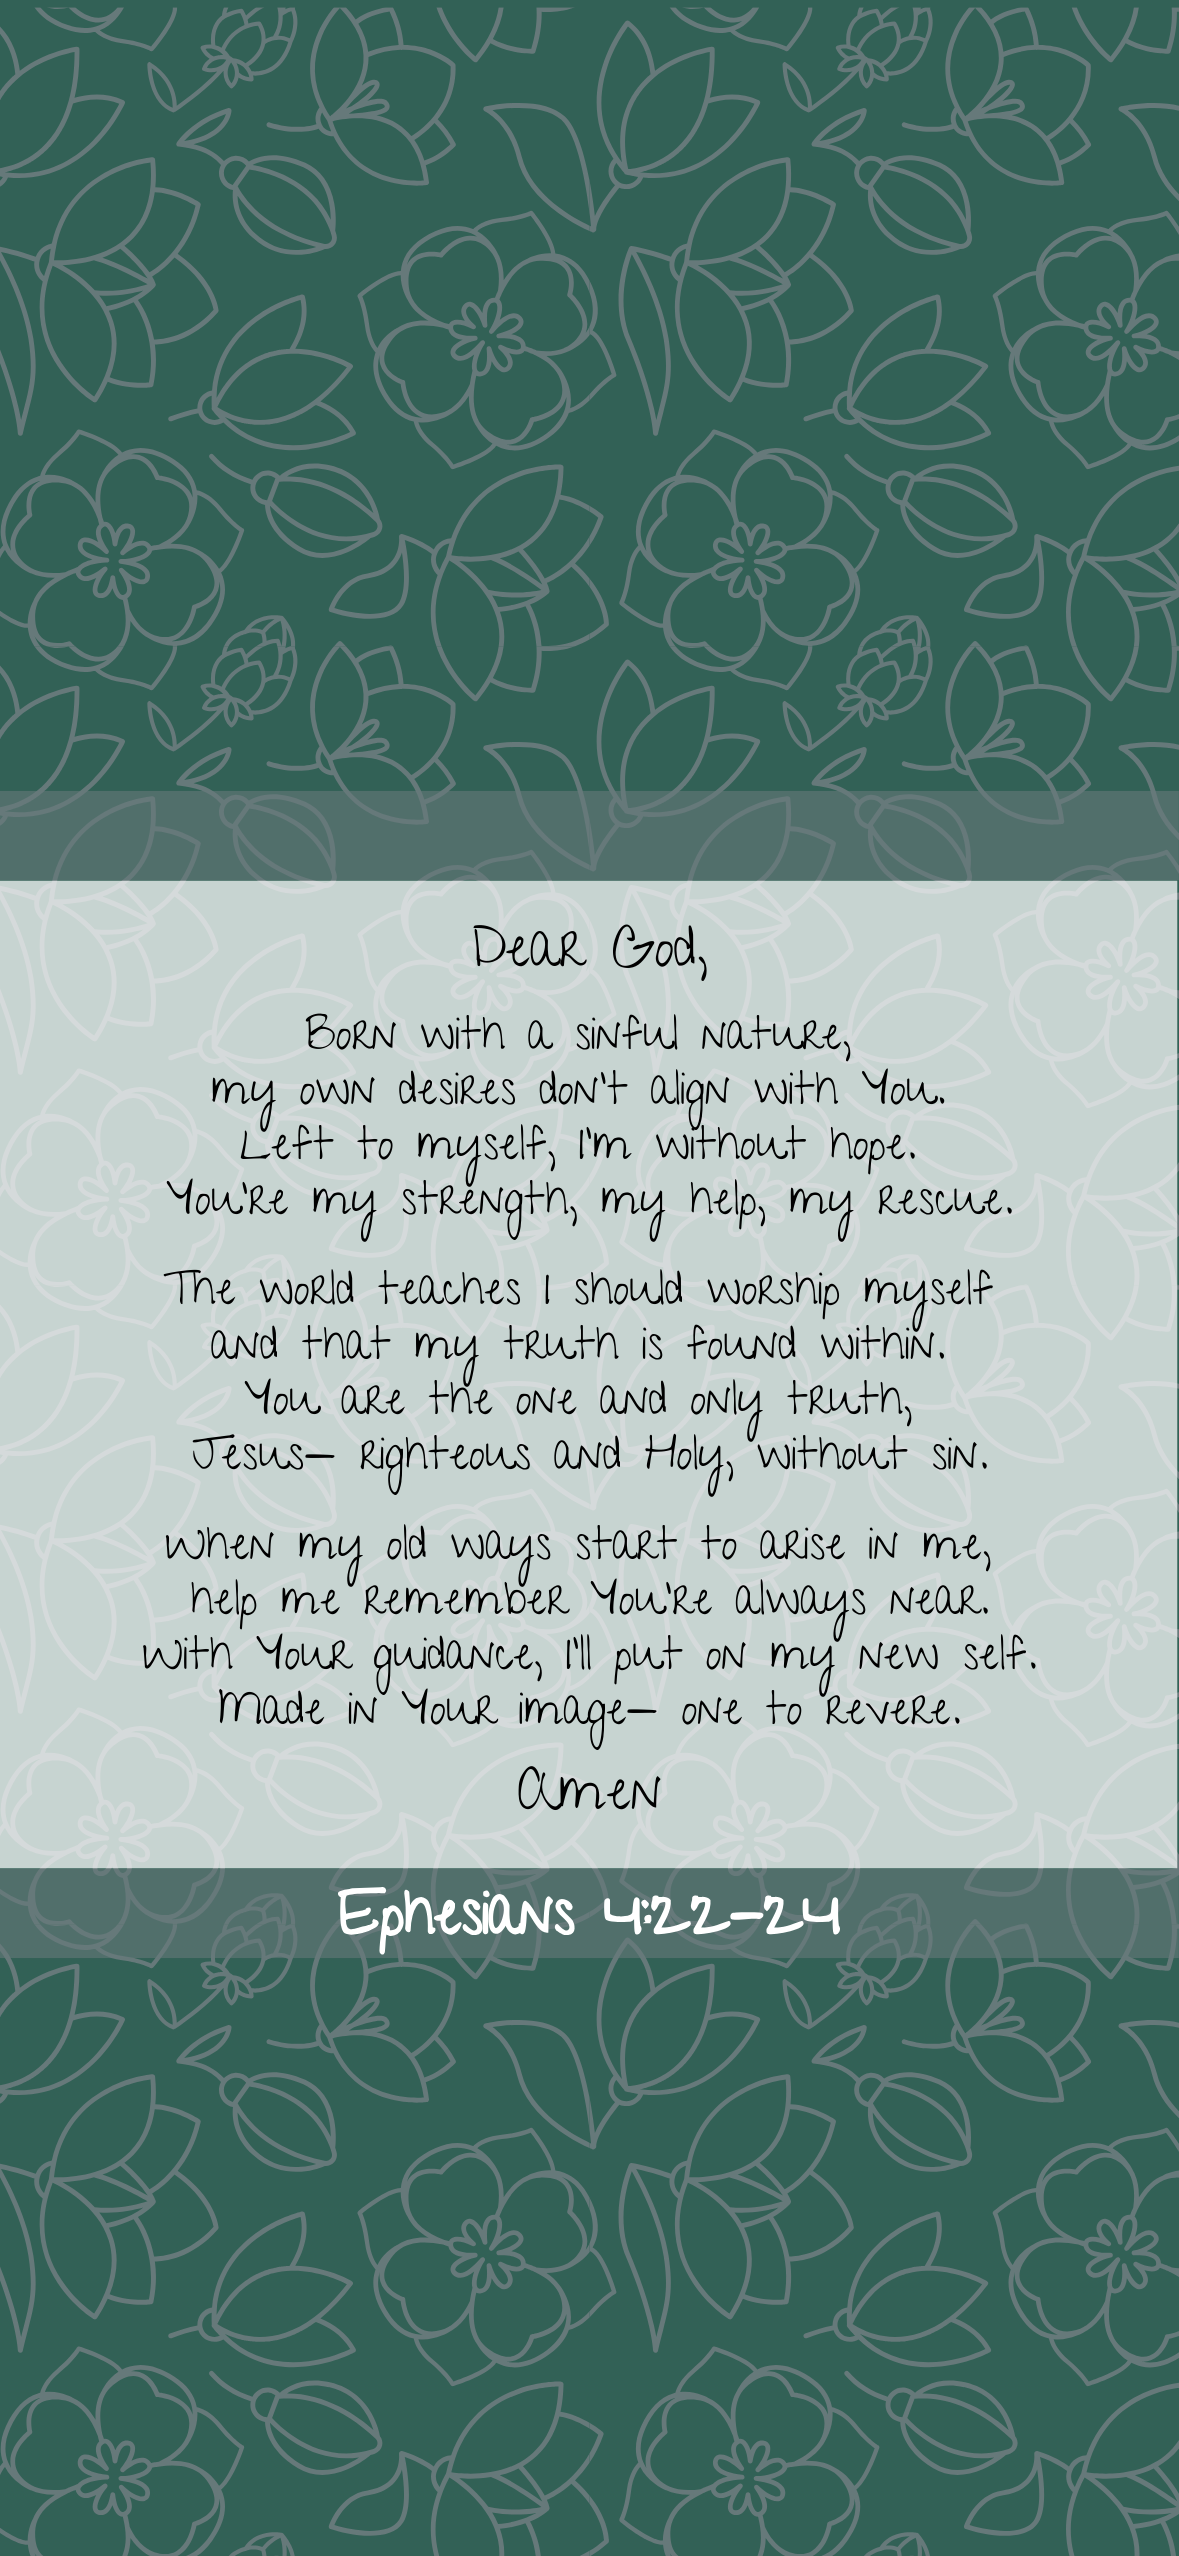 Dear God,
Born with a sinful nature,
my own desires don't align with You.
Left to myself, I'm without hope.
You're my strength, my help, my rescue.
The world teaches I should worship myself
and that my truth is found within.
You are the one and only truth,
Jesus— Righteous and Holy, without sin.
When my old ways start to arise in me,
help me remember You're always near.
With Your guidance, I'll put on my new self.
Made in Your image— one to revere.
Amen
Ephesians 4:22-24